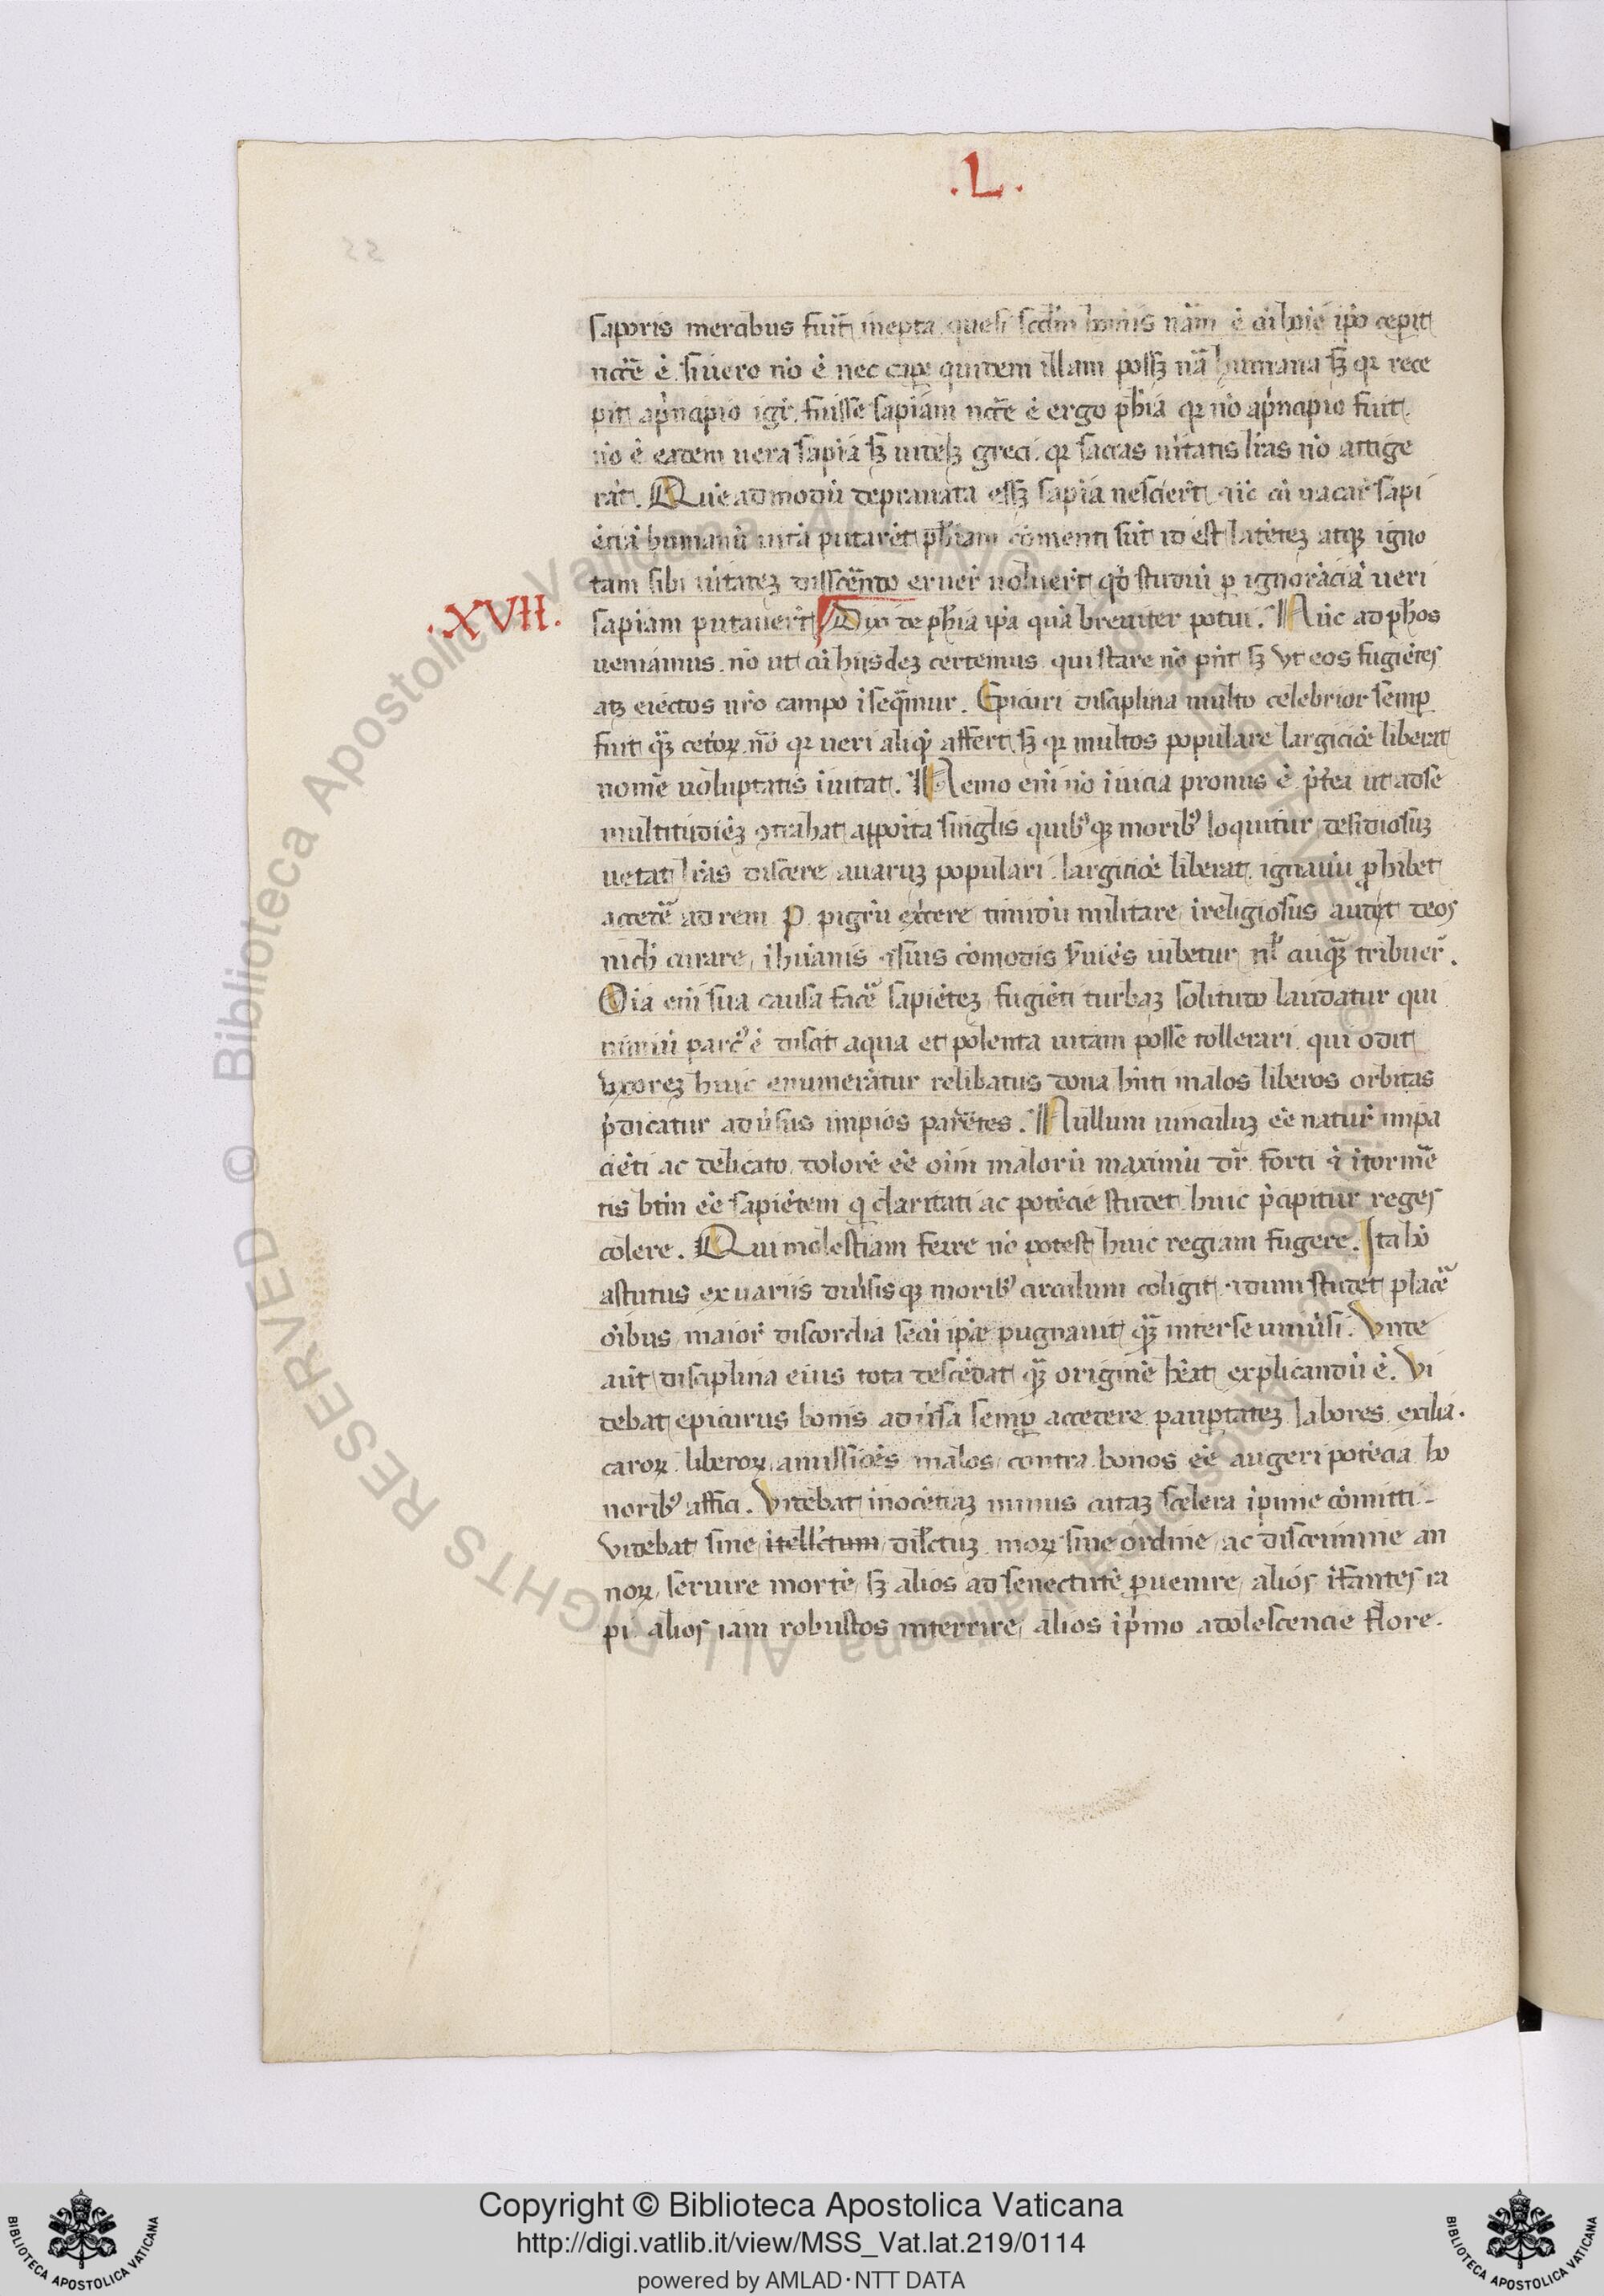 .L.
saporis meracibus fuit inepta. que si scd'm hoīnis nām ē cū hoīe ipō cepit
nccē ē. si uero nō ē nec cape quidem illam possꝫ nā humana sꝫ qꝛ rece
pit ap'ncipio igr̄. fuisse sapiam nccē ē ergo phīa qꝛ nō ap'ncipio fuit.
nō ē eadem uera sapiā sꝫ uidelꝫ greci. qꝛ sacras u'itatis lrās nō attige
rāt. Quēadmodū deprauata essꝫ sapīa nesciert̄
ēciā humanū uitā putarēt phīam cōmenti sūt id est latēteꝫ atqꝫ igno
tam sibi u'itateꝫ disscēndo eruer̄ uoluert̄ qd̄ studiū p ignorāciā ueri
.XVII.
sapiam putauert̄ Dixi de phīa ipā quā breuiter potui. Nūc ad phos
ueniamus. nō ut cū hiisdeꝫ certemus. qui stare nō pn̄t sꝫ vt eos fugiētes
atqꝫ eiectos nr̄o campo iseq̄mur. Epicuri disciplina multo celebrior semp
fuit qꝫ̄ ceto'ꝝ. nō qꝛ ueri aliq'd affert. sꝫ qꝛ multos populare
nomē uoluptatis īuitat. Nemo enī nō ī uicia pronus ē. p't'ea ut ad se
multitudiēꝫ ꝯtrahat apposita singlis quibꝰqꝫ moribꝰ loquitur desidiosuꝫ
uetat lrās discere auaruꝫ populari largiciōe liberat. ignauū ꝓhibet
accedē ad rem P. pigrū exc'ere timidū militare ireligiosus audet deos
nich' curare, ihūanis
Oīa enī sua causa facē sapiēteꝫ fugiēti turbaꝫ solitudo laudatur qui
nimiū parcꝰ ē discit aqua et polenta uitam posse tollerari. qui odit
vxoreꝫ huic enumerātur celibatus bona hn̄ti malos liberos orbitas
p'dicatur adu'sus impios parētes. Nullum uinculuꝫ eē natur̄ impa
ciēti ac delicato dolorē eē oīm malorū maximū dr̄. forti
tis btīm eē sapiētem q claritati ac potēcie studet huic p'cipitur reges
colere. Qui molestiam ferre nō potest huic regiam fugere. Ita hō
astutus ex uariis diu'sisqꝫ moribꝰ circulum coligit
oībus maior̄ discordia secū ipse pugnauit qꝫ̄ inter se uniu'si. Vnde
aūt disciplina eius tota descēdat qꝫ̄ originē hēat explicandū ē. Vi
debat epicurus bonis adu'sa semp accedere paupertateꝫ labores exilia.
caroꝝ liberoꝝ amissiōes malos contra bonos eē augeri potēcia ho
noribꝰ affici. Videbat inocētiaꝫ minus cutaꝫ scelera ipune cōmitti
Videbat sine itell'ctum dil'ctuꝫ moꝝ sine ordine ac discrimine an
noꝝ seruire mortē sꝫ alios ad senectutē ꝑuenire alios ifantes ra
pi alios iam robustos interrire alios ip'mo adolescencie flore.
Copyright © Biblioteca Apostolica Vaticana
http://digi.vatlib.it/view/MSS_Vat.lat.219/0114
powered by AMLAD·NTT DATA
BIBLIOTECA APOSTOLICA VATICANA
BIBLIOTECA APOSTOLICA VATICANA